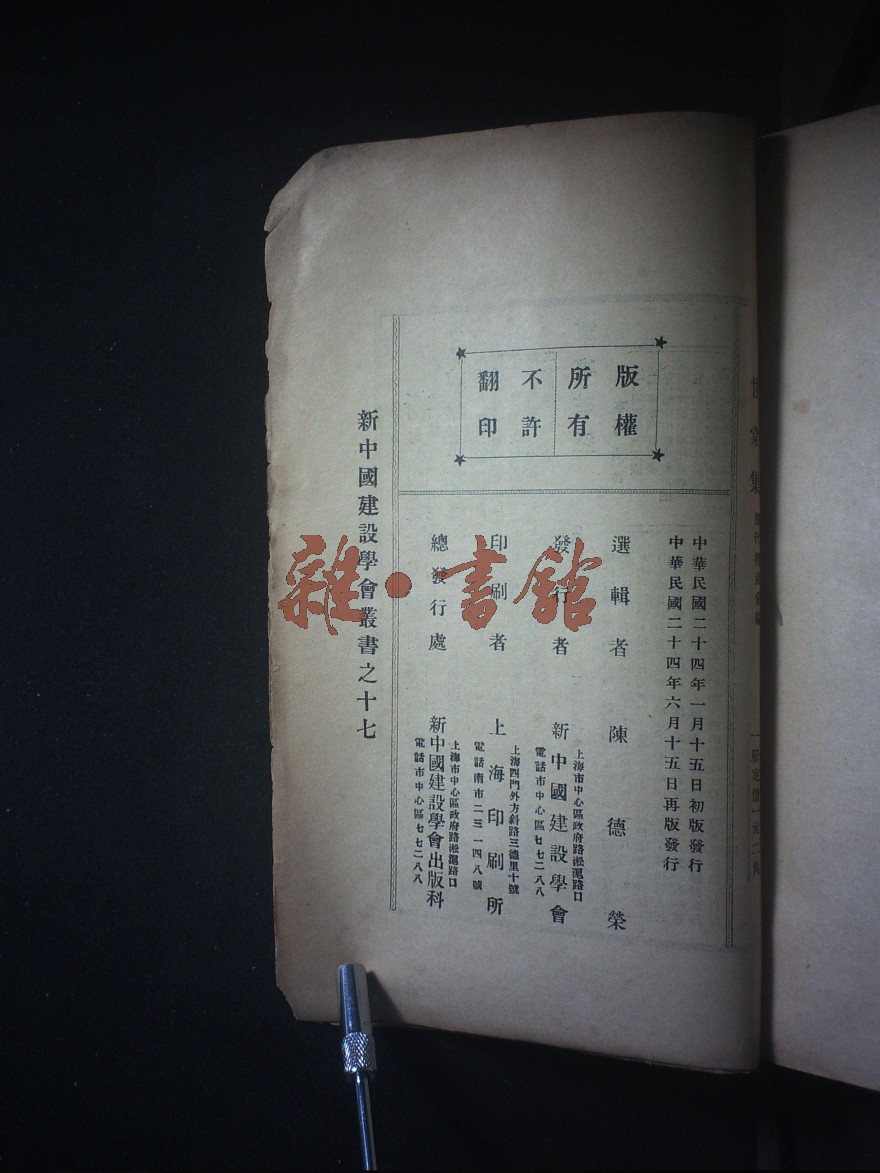 版權
所有
不許
翻印
中華民國二十四年一月十五日初版發行
中華民國二十四年六月十五日再版發行
選輯者 陳德榮
發行者 新中國建設學會
上海市中心區政府路淞滬路口
電話市中心區七七二八八
印刷者 上海印刷所
上海西門外方斜路三德里十號
電話南市二三一四八號
總發行處 新中國建設學會出版科
上海市中心區政府路淞滬路口
電話市中心區七七二八八
新中國建設學會叢書之十七
雜·書館